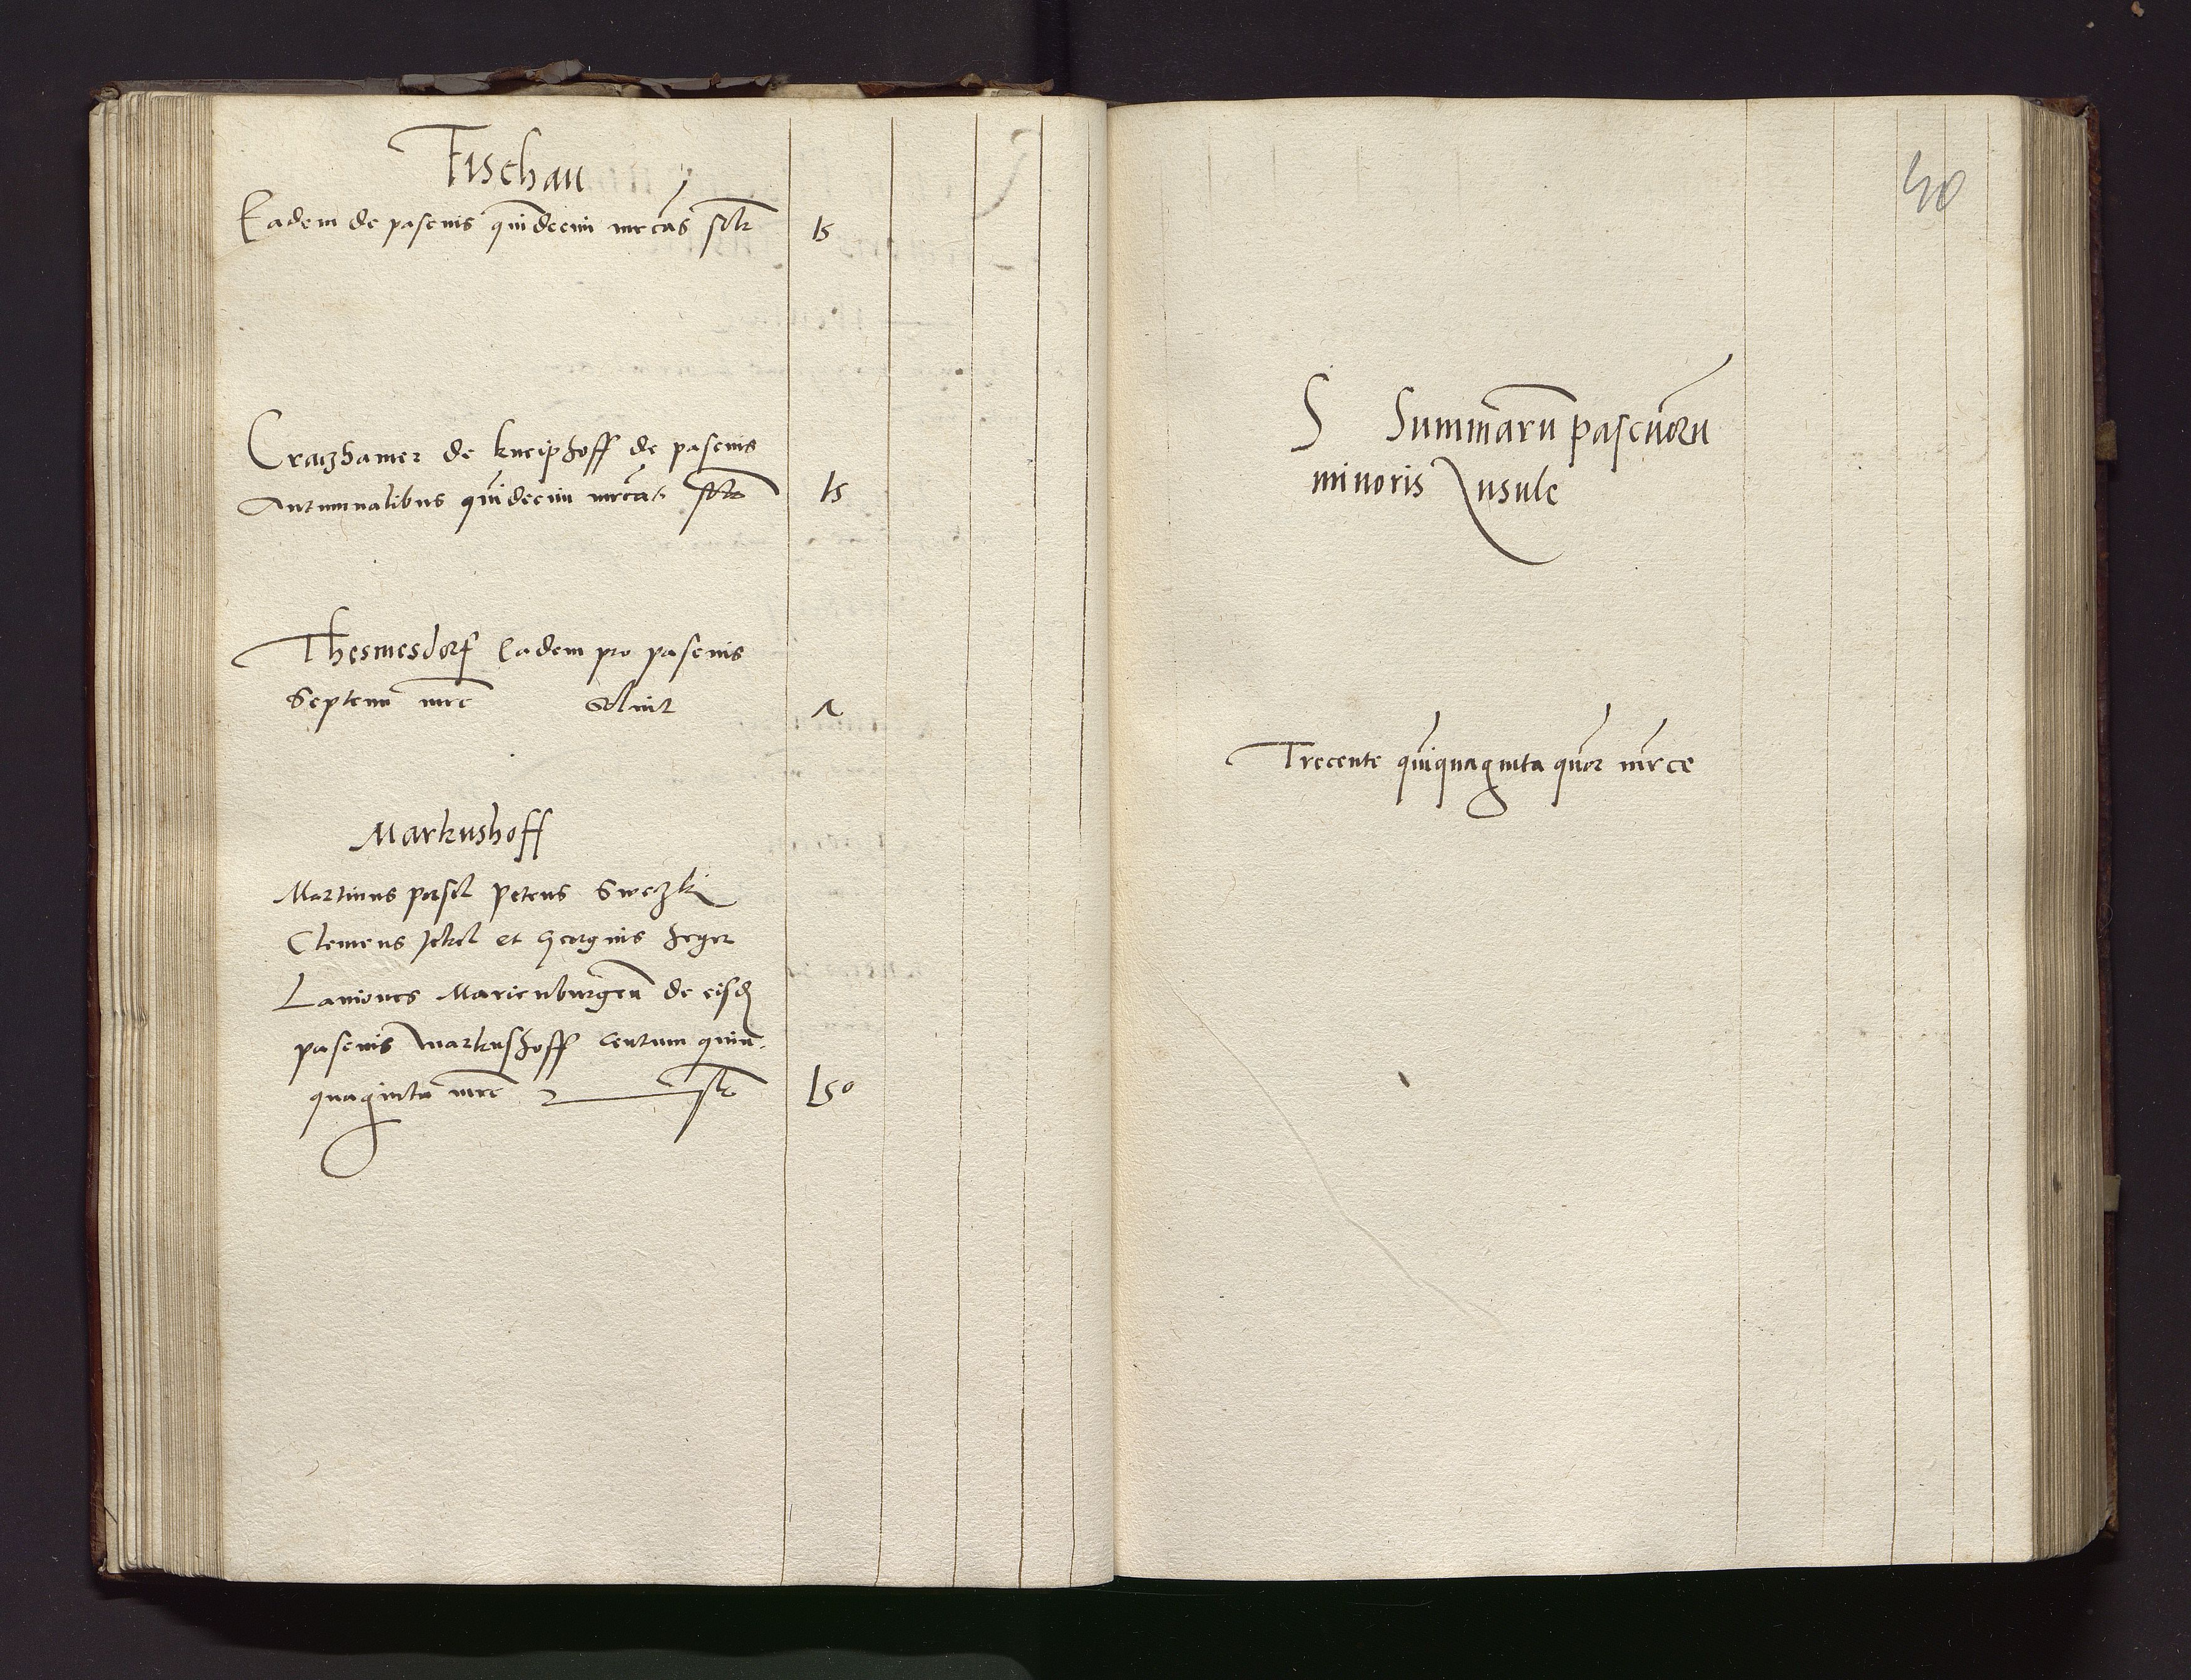 Fischau
Eadem de pascuis quīdecim mrcas solt 15
Cratzhamer de kneiphoff de pascuis
Autumnalibus quīdecim mrcas 15
Thesmesdorf Eadem pro pascuis
Septem mrc soluit 7
Markushoff
Martinus Petrus Sweczk
Clemens et Georgius
Laniones Marienburgeñ de eisd
pascuis Markushoff Centum quin
quaginta mrc 150
40
S Summarū pascuorū
minoris Insule
Trecente quīquaginta quor mrce